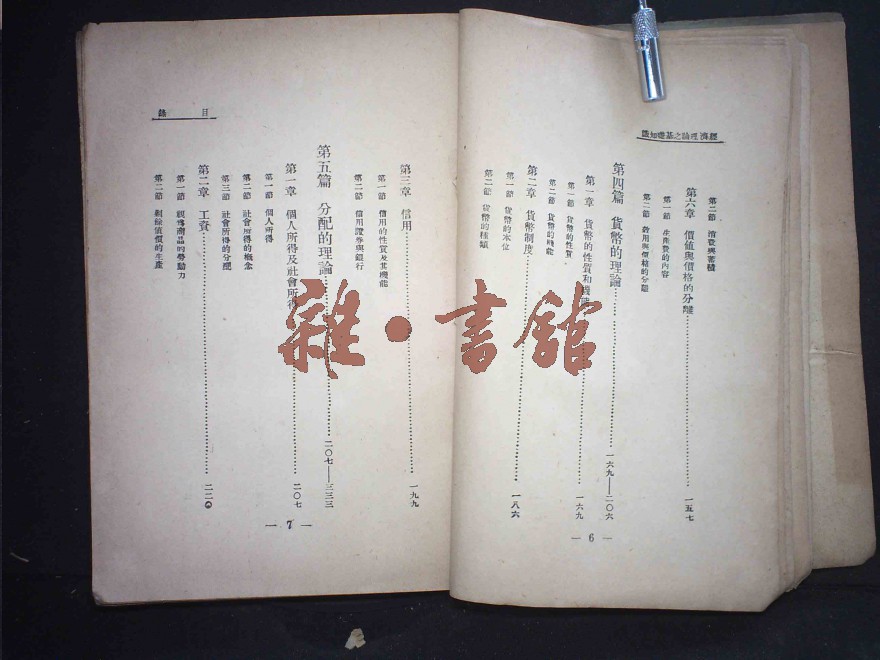 經濟理論之基礎知識
第二節 消費與蓄積
第六章 價値與價格的分離……一五七
第一節 生產費的內容
第二節 效用與價格的分離
第四篇 貨幣的理論……一六九——二〇六
第一章 貨幣的性質和機能……一六九
第一節 貨幣的性質
第二節 貨幣的機能
第二章 貨幣制度……一八六
第一節 貨幣的本位
第二節 貨幣的種類
— 6 —
目錄
第三章 信用……一九九
第一節 信用的性質及其機能
第二節 信用證券與銀行
第五篇 分配的理論……二〇七——三三三
第一章 個人所得及社會所得……二〇七
第一節 個人所得
第二節 社會所得的概念
第三節 社會所得的分配
第二章 工資……二二〇
第一節 視爲商品的勞動力
第二節 剩餘價値的生產
— 7 —
雜·書館